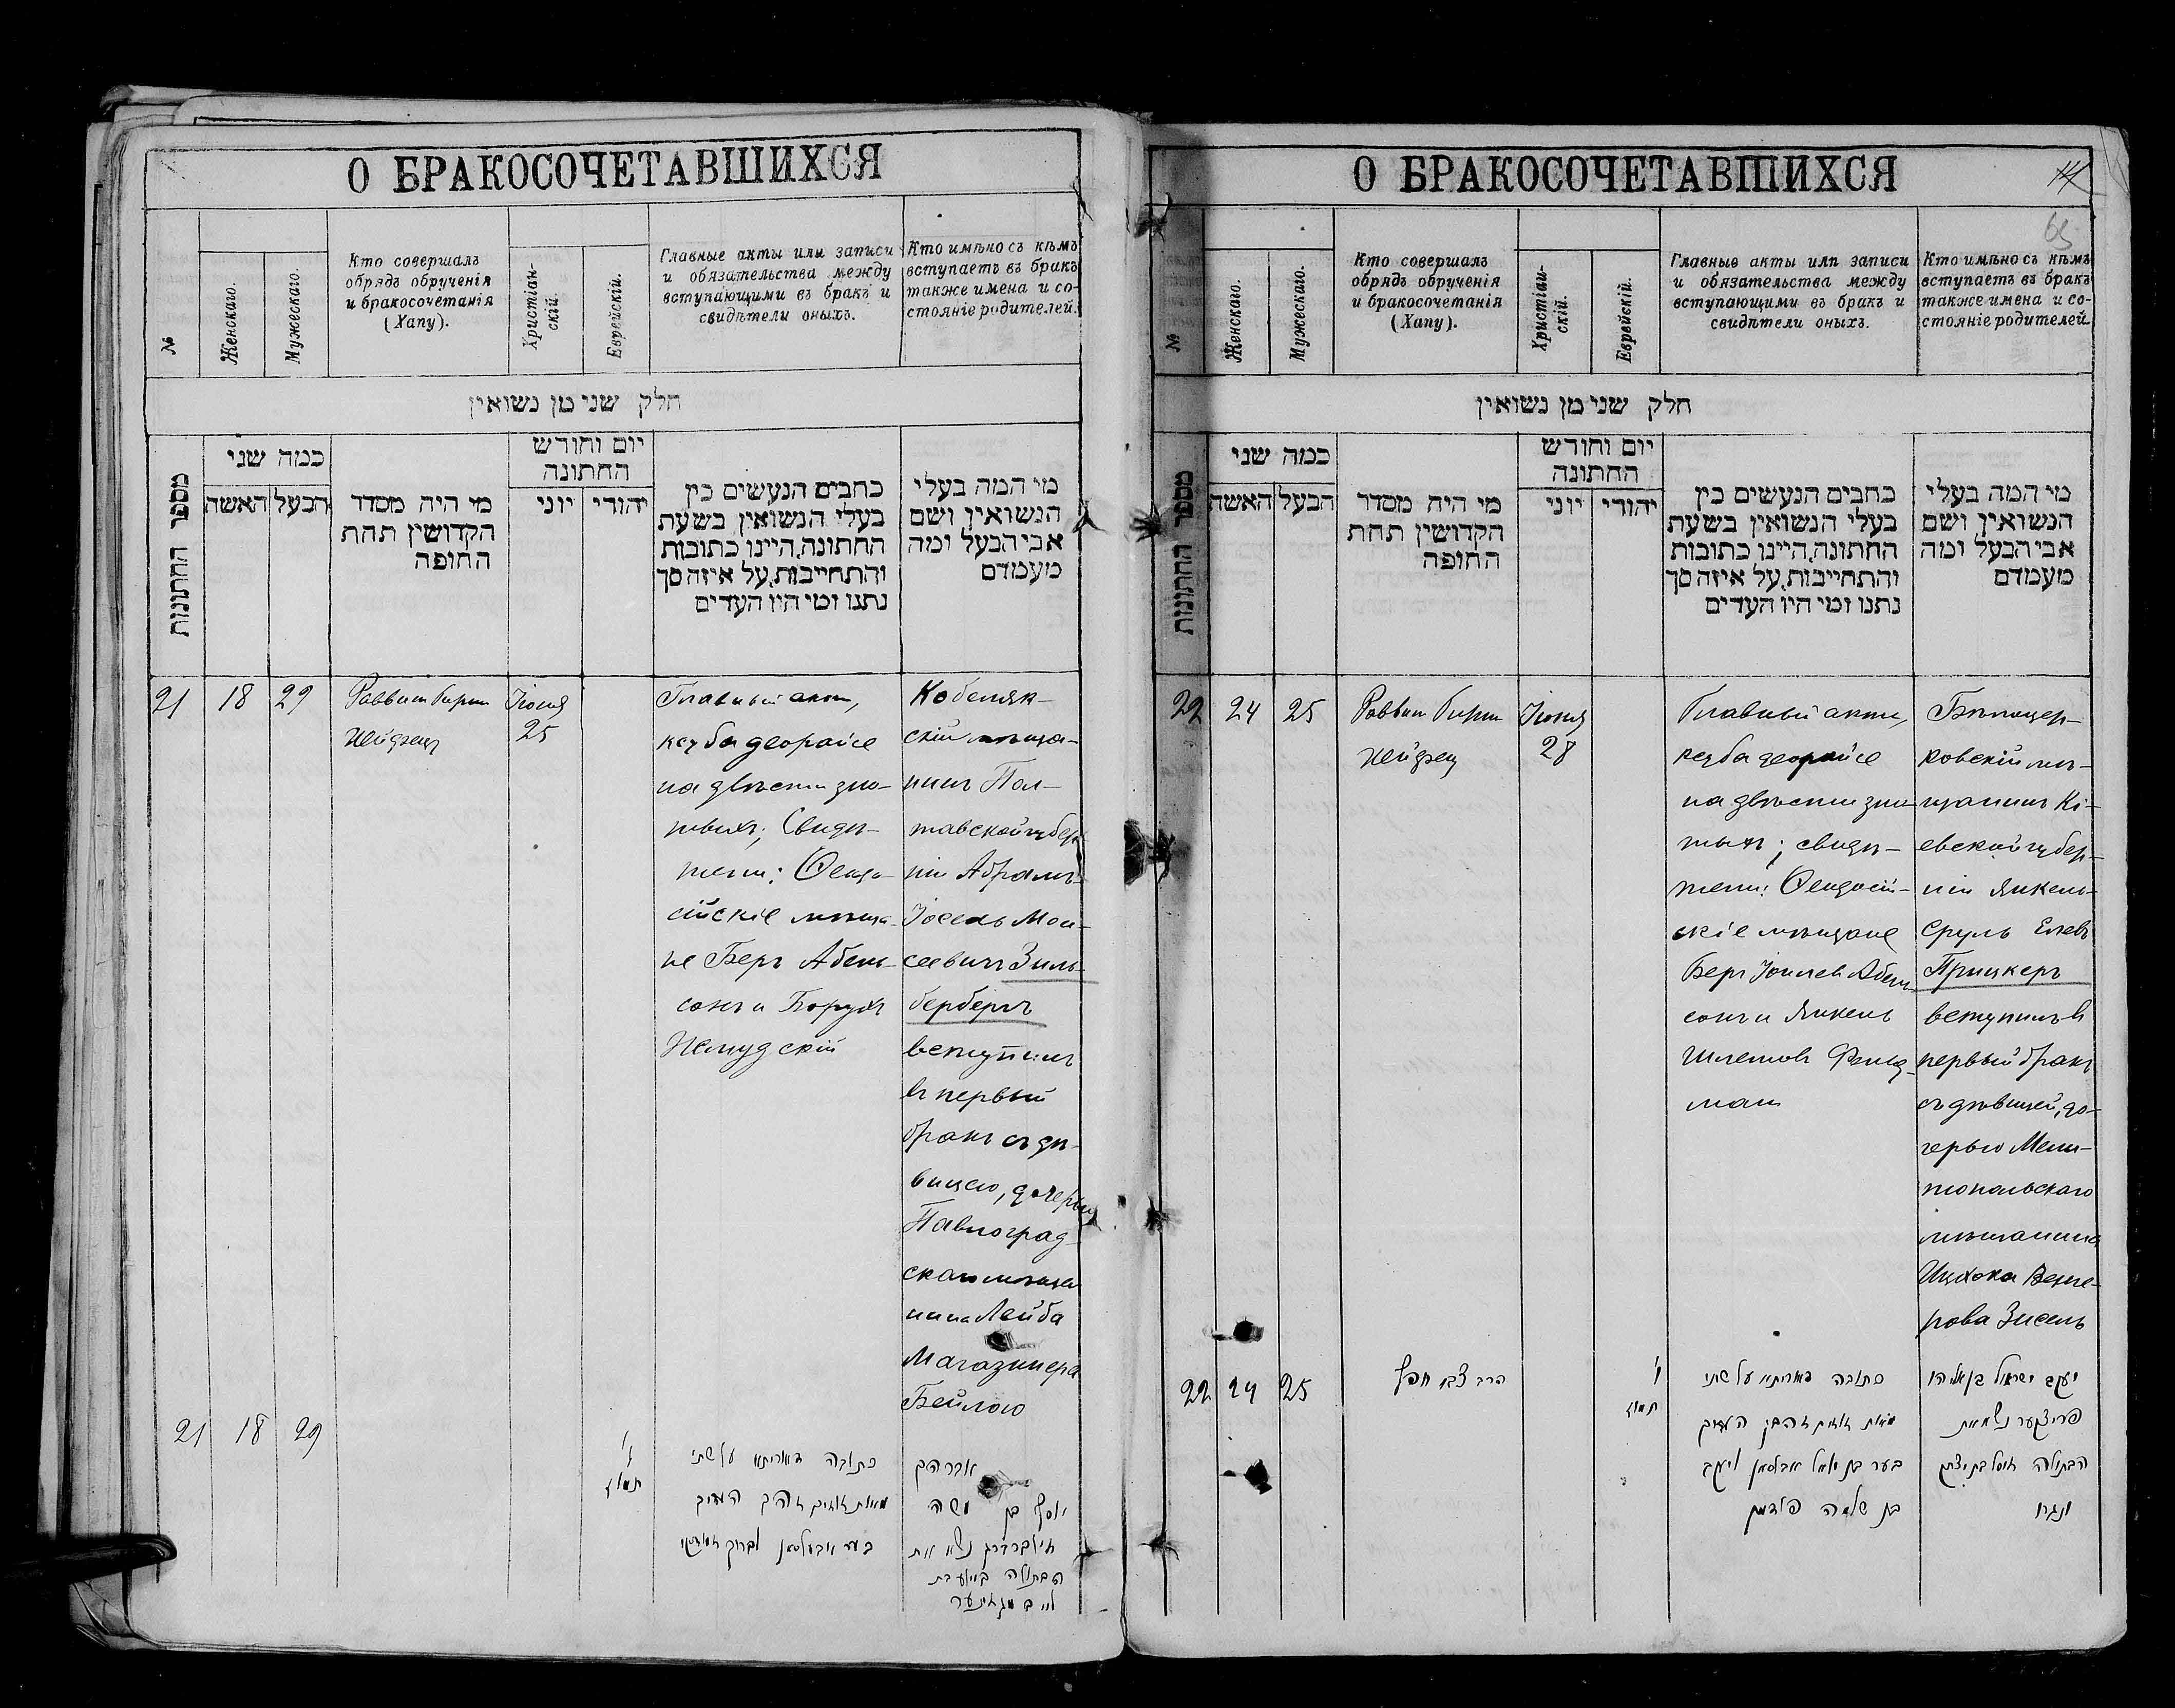 О БРАКОСОЧЕТАВШИХСЯ
№
Женскаго.
Мужескаго.
Кто совершалъ
обрядъ обрученія
и бракосочетанія
(Хапу).
Христіан-
скій.
Еврейскій.
Главные акты или записи
и обязательства между
вступающими въ бракъ и
свидѣтели оныхъ.
Кто имѣно съ кѣмъ
вступаетъ въ бракъ
также имена и со-
стояніе родителей.
חלק שני מן נשואין
מספר החתונות
כמה שני
האשה
הבעל
מי היה מסדר
הקדושין תחת
החופה
יום וחודש
החתונה
יוני
יהודי
כתבים הנעשים בין
בעלי הנשואין בשעת
החתונה, היינו כתובות
והתחייבות, על איזה סך
נתנו ומי היו העדים
מי המה בעלי
הנשואין ושם
אבי הבעל ומה
מעמדם
21
18
29
Раввинъ Гирш
Хейфец
Іюня
25
Главный актъ,
кетуба деорайсе
на двѣсти зло-
тыхъ; Свидѣ-
тели: Ѳеодо-
сійскіе мѣща-
не Беръ Абель-
сонъ и Борухъ
Кобеляк-
скій мѣща-
нинъ Пол-
тавской губер
ніи Абрамъ-
Іосель Мои-
сеевичъ Зиль-
бербергъ
вступилъ
въ первый
бракъ съ дѣ-
вицею, дочерью
Павлоград-
скаго мѣща
нина Лейба
Магазинера
Бейлою
21
18
29
ז׳
תמוז
כתובה דאורייתא על שתי
מאות זוזים זהב העדים
בער אבעלסאן וברוך
אברהם
יוסף בן משה
זילברברג נשא את
הבתולה ביילע בת
לייב מגאזינער
О БРАКОСОЧЕТАВШИХСЯ
65
№
Женскаго.
Мужескаго.
Кто совершалъ
обрядъ обрученія
и бракосочетанія
(Хапу).
Христіан-
скій.
Еврейскій.
Главные акты или записи
и обязательства между
вступающими въ бракъ и
свидѣтели оныхъ.
Кто имѣно съ кѣмъ
вступаетъ въ бракъ
также имена и со-
стояніе родителей
חלק שני מן נשואין
מספר החתונות
כמה שני
האשה
הבעל
מי היה מסדר
הקדושין תחת
החופה
יום וחודש
החתונה
יוני
יהודי
כתבים הנעשים בין
בעלי הנשואין בשעת
החתונה, היינו כתובות
והתחייבות, על איזה סך
נתנו ומי היו העדים
מי המה בעלי
הנשואין ושם
אבי הבעל ומה
מעמדם
22
24
25
Раввинъ Гирш
Хейфец
Іюня
28
Главный актъ,
кетуба деорайсе
на двѣсти зло
тыхъ; свидѣ-
тели: Ѳеодосій-
скіе мѣщане
Беръ Іоилевъ Абель
сонъ и Янкель
Шлемовъ Фельд-
ман
Бѣлоцер-
ковскій мѣ-
щанинъ Кі-
евской губер-
ніи Янкель-
Сруль Елевъ
Прицкеръ
вступилъ в
первый бракъ
съ дѣвицей, до-
черью Мели-
топольскаго
мѣщанина
Ицхока Венге-
рова Зисель
22
24
25
הרב צבי חפץ
י׳
תמוז
כתובה דאורייתא על שתי
מאות זוזים זהב העדים
בער בן יואל אבלסאן ויעקב
בן שלמה פעלדמן
יעקב ישראל בן אליהו
פריצקער נשא את
הבתולה זיסל בת יצחק
ונגרו